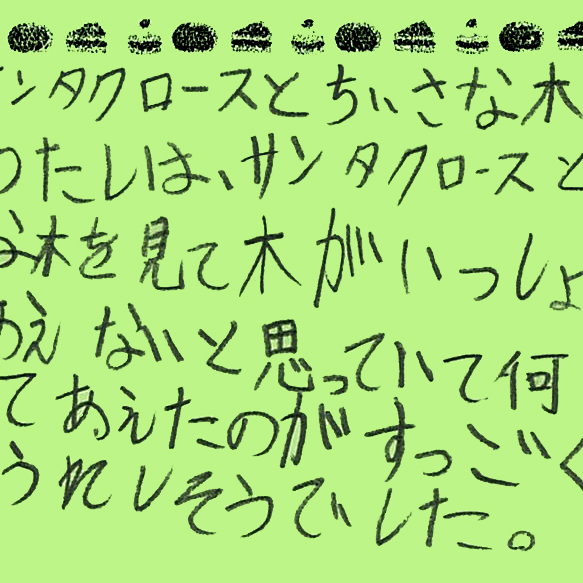 ンタクロースとちいさな木
わたしは、サンタクロースと
な木を見て木がいっしょ
あえないと思っていて何
てあえたのがすっごく
うれしそうでした。